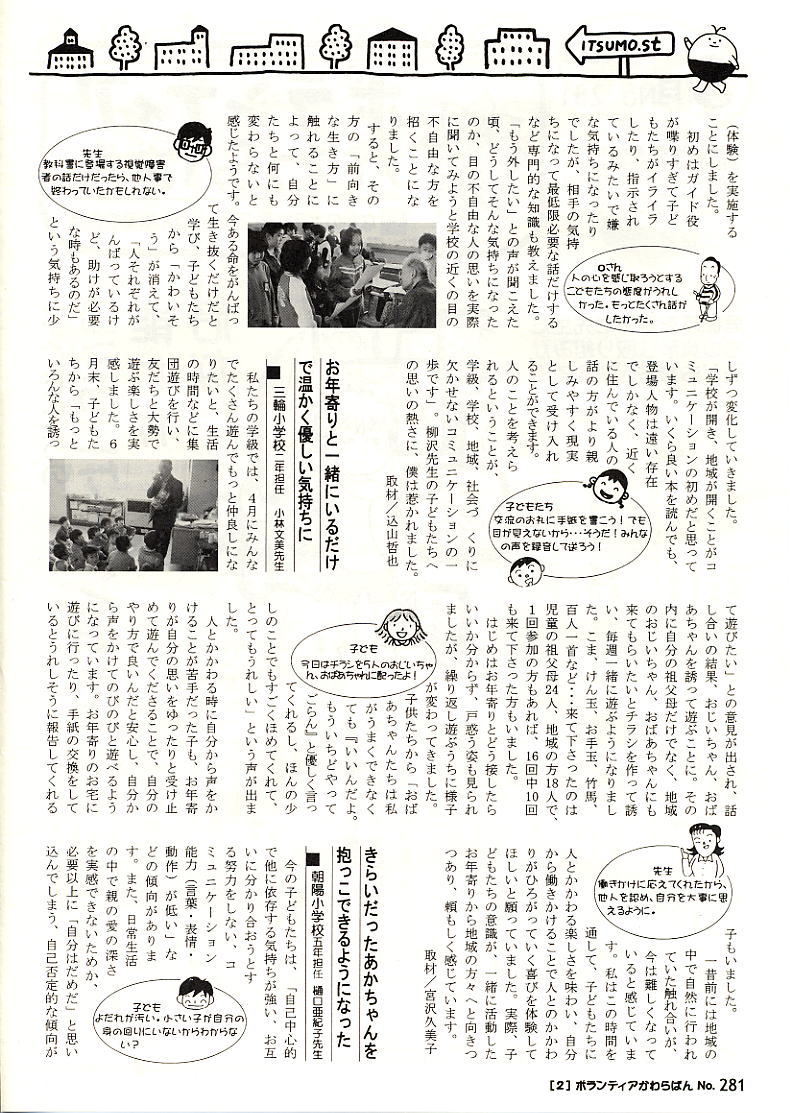 ITSUMO.st
（体験）を実施する
ことにしました。
初めはガイド役
が喋りすぎて子ど
もたちがイライラ
したり、指示され
ているみたいで嫌
な気持ちになったり
でしたが、相手の気持
ちになって最低限必要な話だけする
など専門的な知識も教えました。
「もう外したい」との声が聞こえた
頃、どうしてそんな気持ちになった
のか、目の不自由な人の思いを実際
に聞いてみようと学校の近くの目の
不自由な方を
招くことにな
りました。
すると、その
方の「前向き
な生き方」に
触れることに
よって、自分
たちと何にも
変わらないと
感じたようです。今ある命をがんばっ
て生き抜くだけだと
学び、子どもたち
から「かわいそ
う」が消えて、
「人それぞれが
んばっているけ
ど、助けが必要
な時もあるのだ」
という気持ちに少
Oさん
人の心を感じ取ろうとする
こどもたちの態度がうれし
かった。もってたくさん話が
したかった。
先生
教科書に登場する視覚障害
者の話だけだったら、他人事で
終わっていたかもしれない。
しずつ変化していきました。
「学校が開き、地域が開くことがコ
ミュニケーションの初めだと思って
います。いくら良い本を読んでも、
登場人物は遠い存在
でしかなく、近く
に住んでいる人の
話の方がより親
しみやすく現実
として受け入れ
ることができます。
人のことを考えら
れるということが、
学級、学校、地域、社会づくりに
欠かせないコミュニケーションの一
歩です」。柳沢先生の子どもたちへ
の思いの熱さに、僕は惹かれました。
取材／込山哲也
子どもたち
交流のお礼に手紙を書こう！でも
目が見えないから・・・そうだ！みんな
の声を録音して送ろう！
お年寄りと一緒にいるだけ
で温かく優しい気持ちに
■三輪小学校二年担任 小林文美先生
私たちの学級では、４月にみんな
でたくさん遊んでもっと仲良しにな
りたいと、生活
の時間などに集
団遊びを行い、
友だちと大勢で
遊ぶ楽しさを実
感しました。６
月末、子どもた
ちから「もっと
いろんな人を誘っ
て遊びたい」との意見が出され、話
し合いの結果、おじいちゃん、おば
あちゃんを誘って遊ぶことに。その
内に自分の祖父母だけでなく、地域
のおじいちゃん、おばあちゃんにも
来てもらいたいとチラシを作って誘
い、毎週一緒に遊ぶようになりまし
た。こま、けん玉、お手玉、竹馬、
百人一首など・・・来て下さったのは
児童の祖父母24人、地域の方18人で、
１回参加の方もあれば、16回中10回
も来て下さった方もいました。
はじめはお年寄りとどう接したら
いいか分からず、戸惑う姿も見られ
ましたが、繰り返し遊ぶうちに様子
が変わってきました。
子供たちから「おば
あちゃんたちは私
がうまくできなく
ても『いいんだよ。
もういちどやって
ごらん』と優しく言っ
てくれるし、ほんの少
しのことでもすごくほめてくれて、
とってもうれしい」という声が出ま
した。
人とかかわる時に自分から声をか
けることが苦手だった子も、お年寄
りが自分の思いをゆったりと受け止
めて遊んでくださることで、自分の
やり方で良いんだと安心し、自分か
ら声をかけてのびのびと遊べるよう
になっています。お年寄りのお宅に
遊びに行ったり、手紙の交換をして
いるとうれしそうに報告してくれる
子ども
今日はチラシを5人のおじいちゃ
ん、おばあちゃんに配ったよ！
子もいました。
一昔前には地域の
中で自然に行われ
ていた触れ合いが、
今は難しくなって
いると感じていま
す。私はこの時間を
通して、子どもたちに
人とかかわる楽しさを味わい、自分
から働きかけることで人とのかかわ
りがひろがっていく喜びを体験して
ほしいと願っていました。実際、子
どもたちの意識が、一緒に活動した
お年寄りから地域の方々へと向きつ
つあり、頼もしく感じています。
取材／宮沢久美子
先生
働きかけに応えてくれたから、
他人を認め、自分を大事に思
えるように。
きらいだったあかちゃんを
抱っこできるようになった
■朝陽小学校五年担任 樋口亜紀子先生
今の子どもたちは、「自己中心的
で他に依存する気持ちが強い、お互
いに分かり合おうとす
る努力をしない、コ
ミュニケーション
能力（言葉・表情・
動作）が低い」な
どの傾向がありま
す。また、日常生活
の中で親の愛の深さ
を実感できないためか、
必要以上に「自分はだめだ」と思い
込んでしまう、自己否定的な傾向が
子ども
よだれが汚い。小さい子が自分の
身の回りにいないからわからな
い？
［2］ボランティアかわらばん No. 281